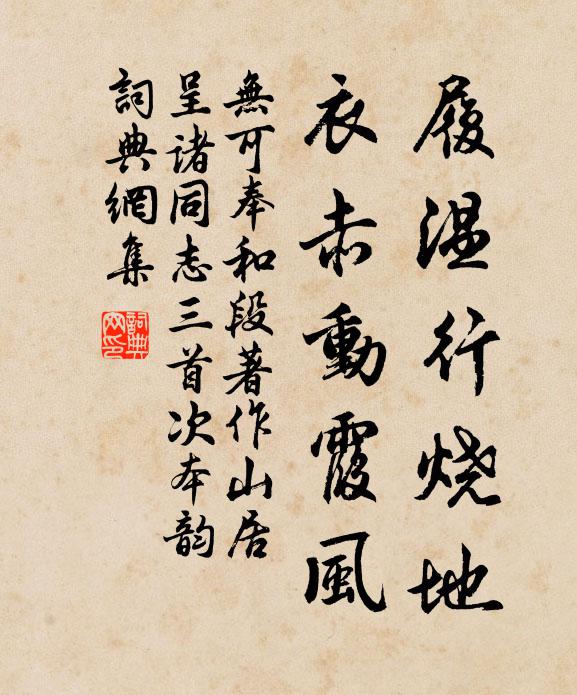 履温行烧地
衣赤動霞風
無可奉和段著作山居
呈诸同志三首次本韵
詞典網集
詞典
网印